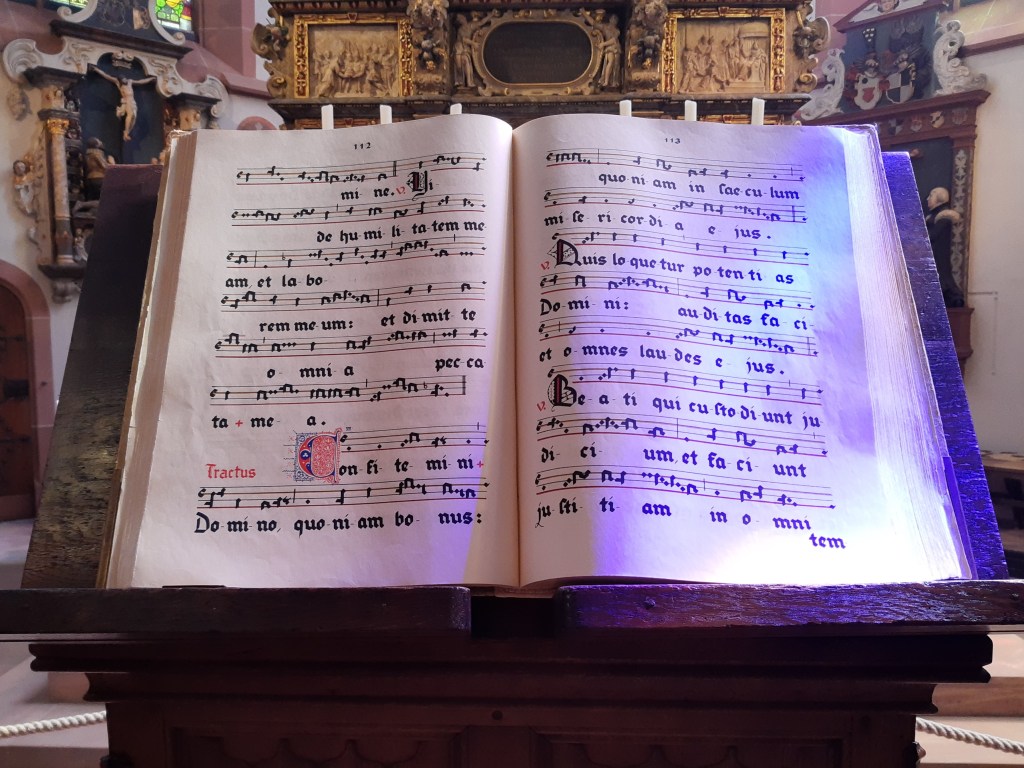 112
mi- ne. V. Vi
de hu- mi- li- ta- tem me
am, et la- bo
rem me- um: et di- mit- te
o- mni- a pec- ca
ta + me- a.
Tractus Con- fi- te- mi- ni +
Do- mi- no, quo- ni- am bo- nus:
113
quo- ni- am in sae- cu- lum
mi- se- ri- cor- di- a e- jus.
V. Quis lo- que- tur po- ten- ti- as
Do- mi- ni: au- di- tas fa- ci-
et o- mnes lau- des e- jus.
V. Be- a- ti qui cu- sto- di- unt ju
di- ci- um, et fa- ci- unt
ju- sti- ti- am in o- mni
tem